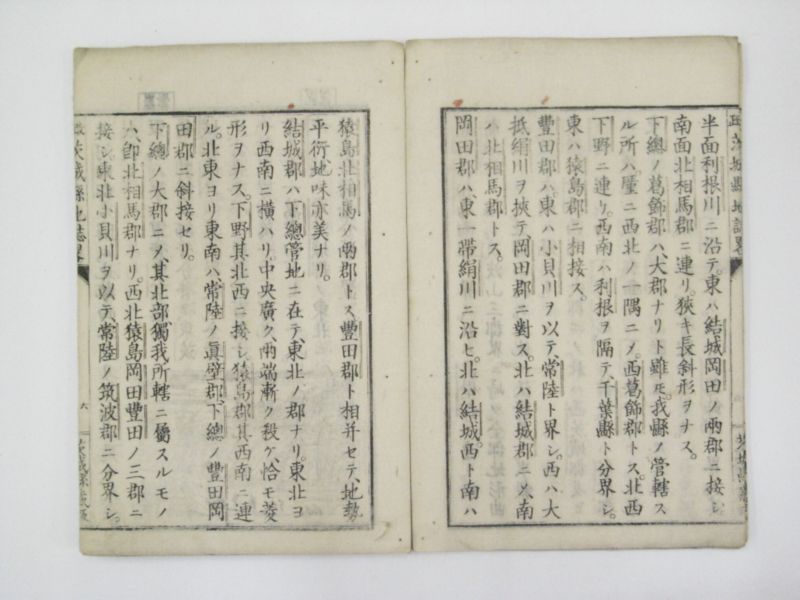 半面利根川ニ沿テ、東ハ結城岡田ノ兩郡ニ接シ
南面北相馬郡ニ連リ。狹キ長斜形ヲナス。
下總ノ葛飾郡ハ、大郡ナリト雖𪜈。我縣ノ管轄ス
ル所ハ。堇ニ西北ノ一隅ニメ。西葛飾郡トス。北西
下野ニ連リ。西南ハ利根ヲ隔テ千葉縣ト分界シ。
東ハ猿島郡ニ相接ス。
豐田郡ハ、東ハ小貝川ヲ以テ、常陸ト界シ。西ハ大
抵絹川ヲ挾テ、岡田郡ニ對ス。北ハ結城郡ニメ、南
ハ北相馬郡トス。
岡田郡ハ、東一帶絹川ニ沿ヒ。北ハ結城。西ト南ハ
猿島北相馬ノ兩郡トス豐田郡ト相并セテ、地勢
平衍、地味亦美ナリ。
結城郡ハ、下總管地ニ在テ、東北ノ郡ナリ。東北ヨ
リ西南ニ横ハリ。中央廣ク、兩端漸ク殺ケ、恰モ菱
形ヲナス。下野其北西ニ接シ猿島郡其西南ニ連
ル。北東ヨリ東南ハ、常陸ノ眞壁郡、下總ノ豐田岡
田郡ニ斜接セリ。
下總ノ大郡ニメ、其北部獨我所轄ニ屬スルモノ
ハ、卽北相馬郡ナリ。西北猿島岡田豐田ノ三郡ニ
接シ東北小貝川ヲ以テ、常陸ノ筑波郡ニ分界シ。
茨城縣地誌畧
六